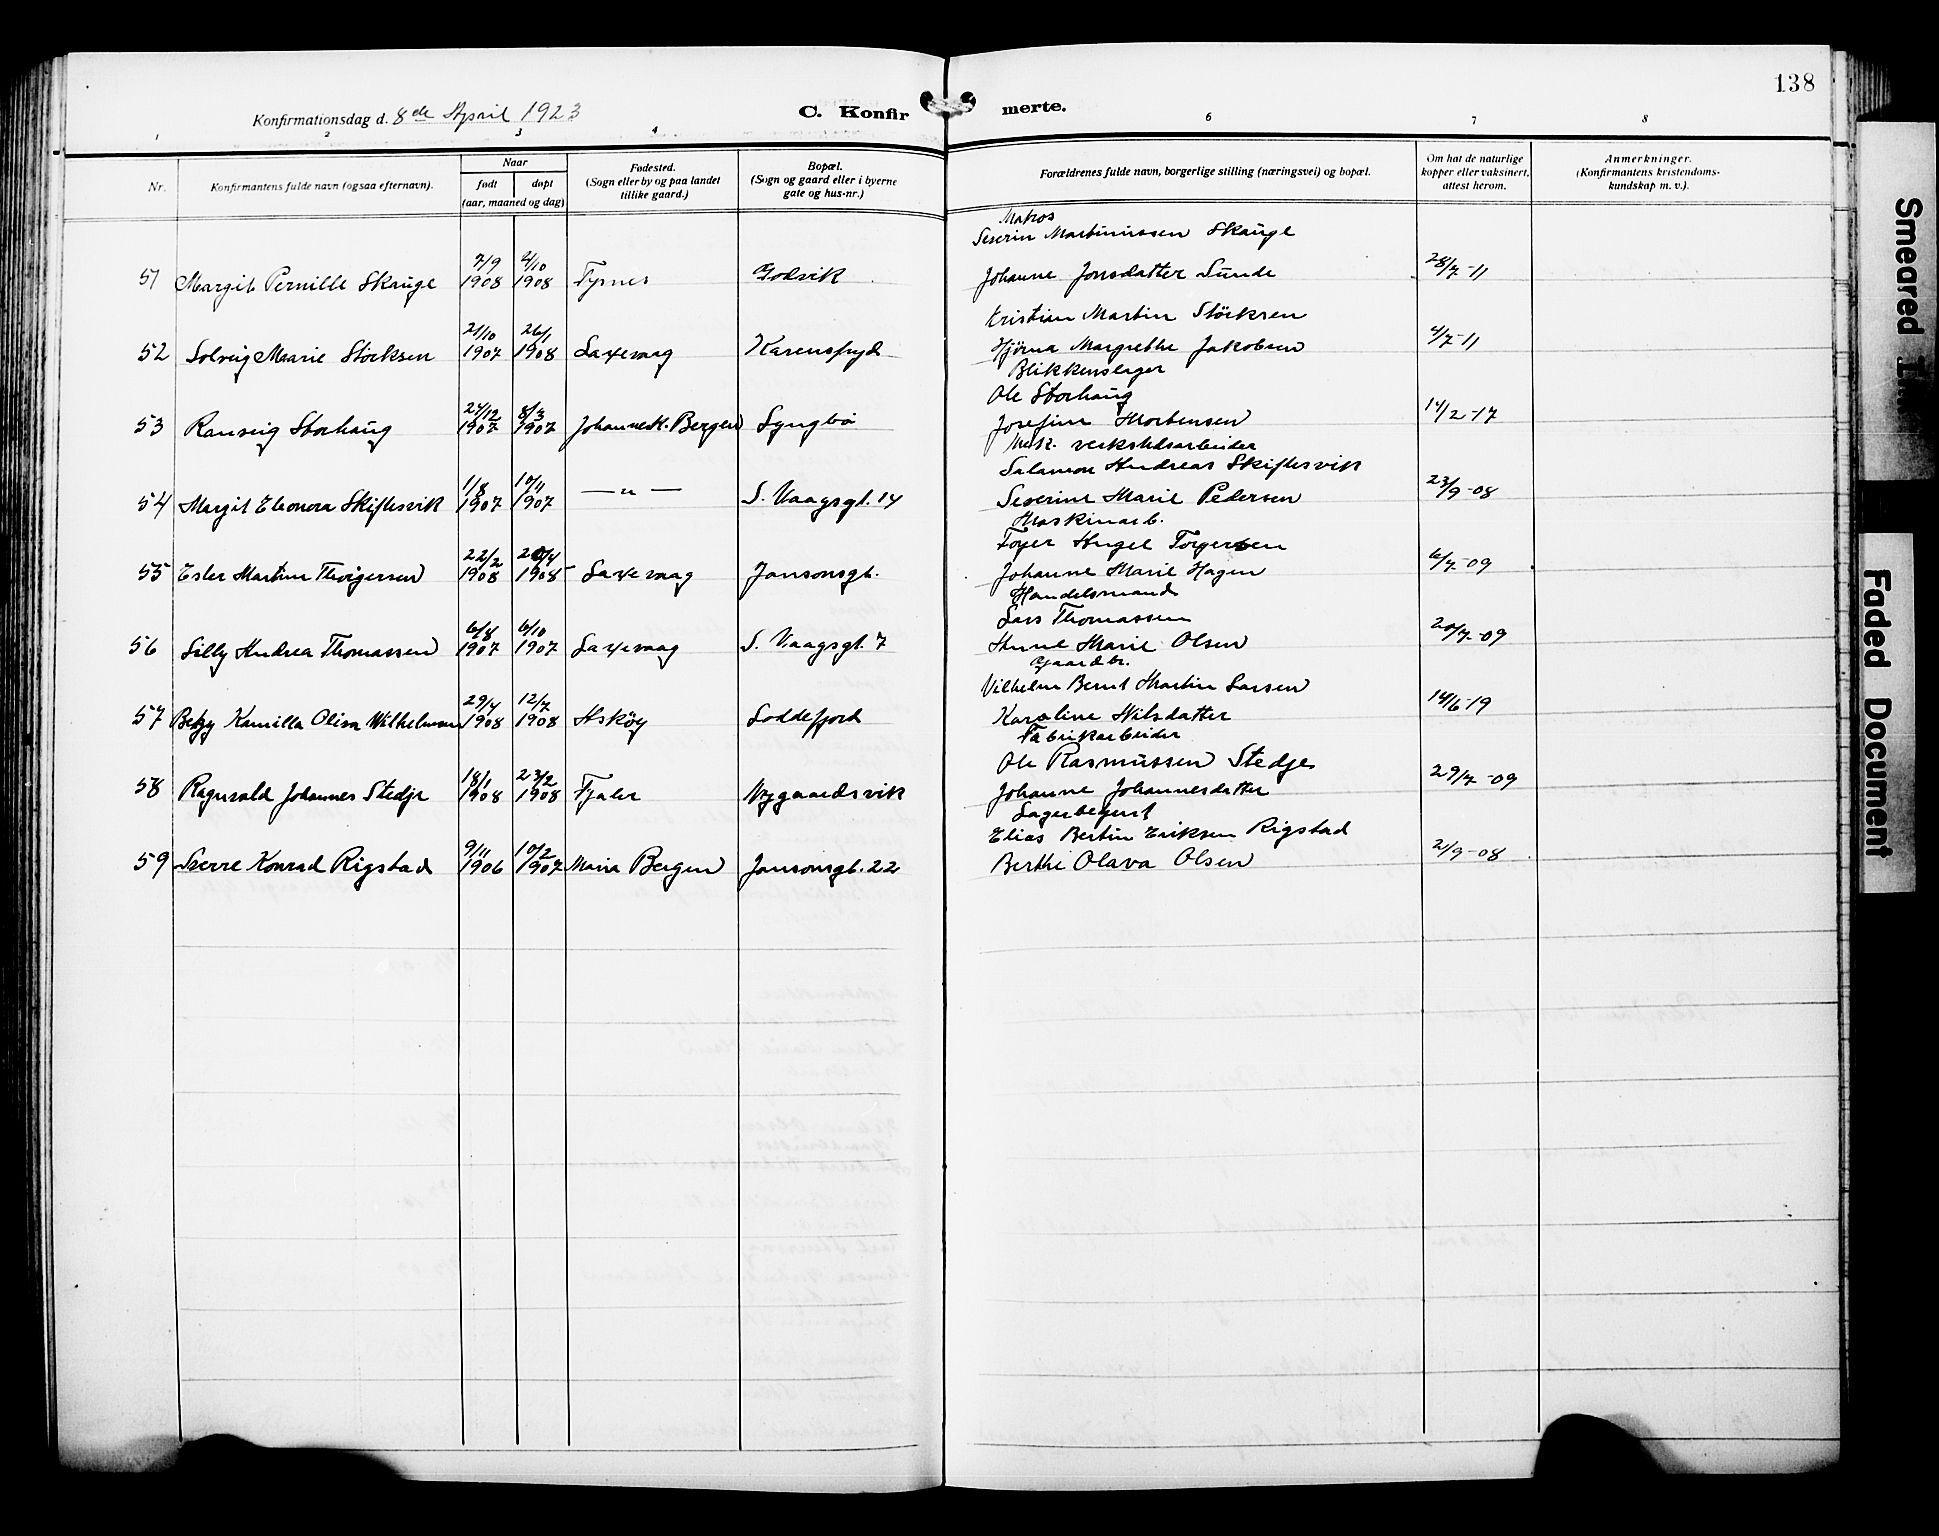 138
Konfirmationsdag d. 8de April 1923
C. Konfir
merte.
1 2 3 4 6 7 8
Nr.
Konfirmantens fulde navn (ogsaa efternavn).
Naar
født
døpt
(aar, maaned og dag)
Fødested.
(Sogn eller by og paa landet
tillike gaard.)
Bopæl.
(Sogn og gaard eller i byerne
gate og hus-nr.)
Forældrenes fulde navn, borgerlige stilling (næringsvei) og bopæl.
Om hat de naturlige
kopper eller vaksinert,
attest herom.
Anmerkninger.
(Konfirmantens kristendoms-
kundskap m. v.).
Matros
Severin Martinussen Skauge
7/9 4/10
51 Margit Pernille Skauge 1908 1908 Tysnes Godvik Johanne Jonsdatter Sunde 28/7-11
Kristian Martin Störksen
21/10 26/1
52 Solveig Marie Störksen 1907 1908 Laxevaag Karensfryd Hjörna Margrethe Jakobsen 4/7-11
Blikkenslager
Ole Storhaug
27/12 8/3
53 Ranveig Storhaug 1907 1907 Johannesk. Bergen Lyngbö Josefine Mortensen 14/2-17
Mek. verkstedsarbeider
Salamon Andreas Skiftesvik
1/8 10/11
54 Margit Eleonora Skiftesvik 1907 1907 — „ — S. Vaagsgt. 14 Severine Marie Pedersen 23/9-08
Maskinarb.
Torger Angel Torgersen
22/2 20/4
55 Ester Martine Thorgersen 1908 1908 Laxevaag Jansonsgt. Johanne Marie Hagen 6/7-09
Handelsmand
Lars Thomassen
6/8 6/10
56 Lilly Andrea Thomassen 1907 1907 Laxevaag S. Vaagsgt. 7 Anne Marie Olsen 20/7-09
Gaardbr.
Vilhelm Bernt Martin Larsen
29/4 12/7
57 Betzy Kamilla Olisa Wilhelmsen 1908 1908 Askøy Loddefjord Karoline Nilsdatter 14/6-19
Fabrikarbeider
Ole Rasmussen Stedje
18/1 23/2
58 Ragnvald Johannes Stedje 1908 1908 Fjaler Nygaardsvik Johanne Johannesdatter 29/7-09
Lagerbetjent
Elias Bertin Eriksen Rigstad
9/11 10/2
59 Sverre Konrad Rigstad 1906 1907 Maria Bergen Jansonsgt. 22 Berthe Olava Olsen 2/9-08
Smeared
Faded Document